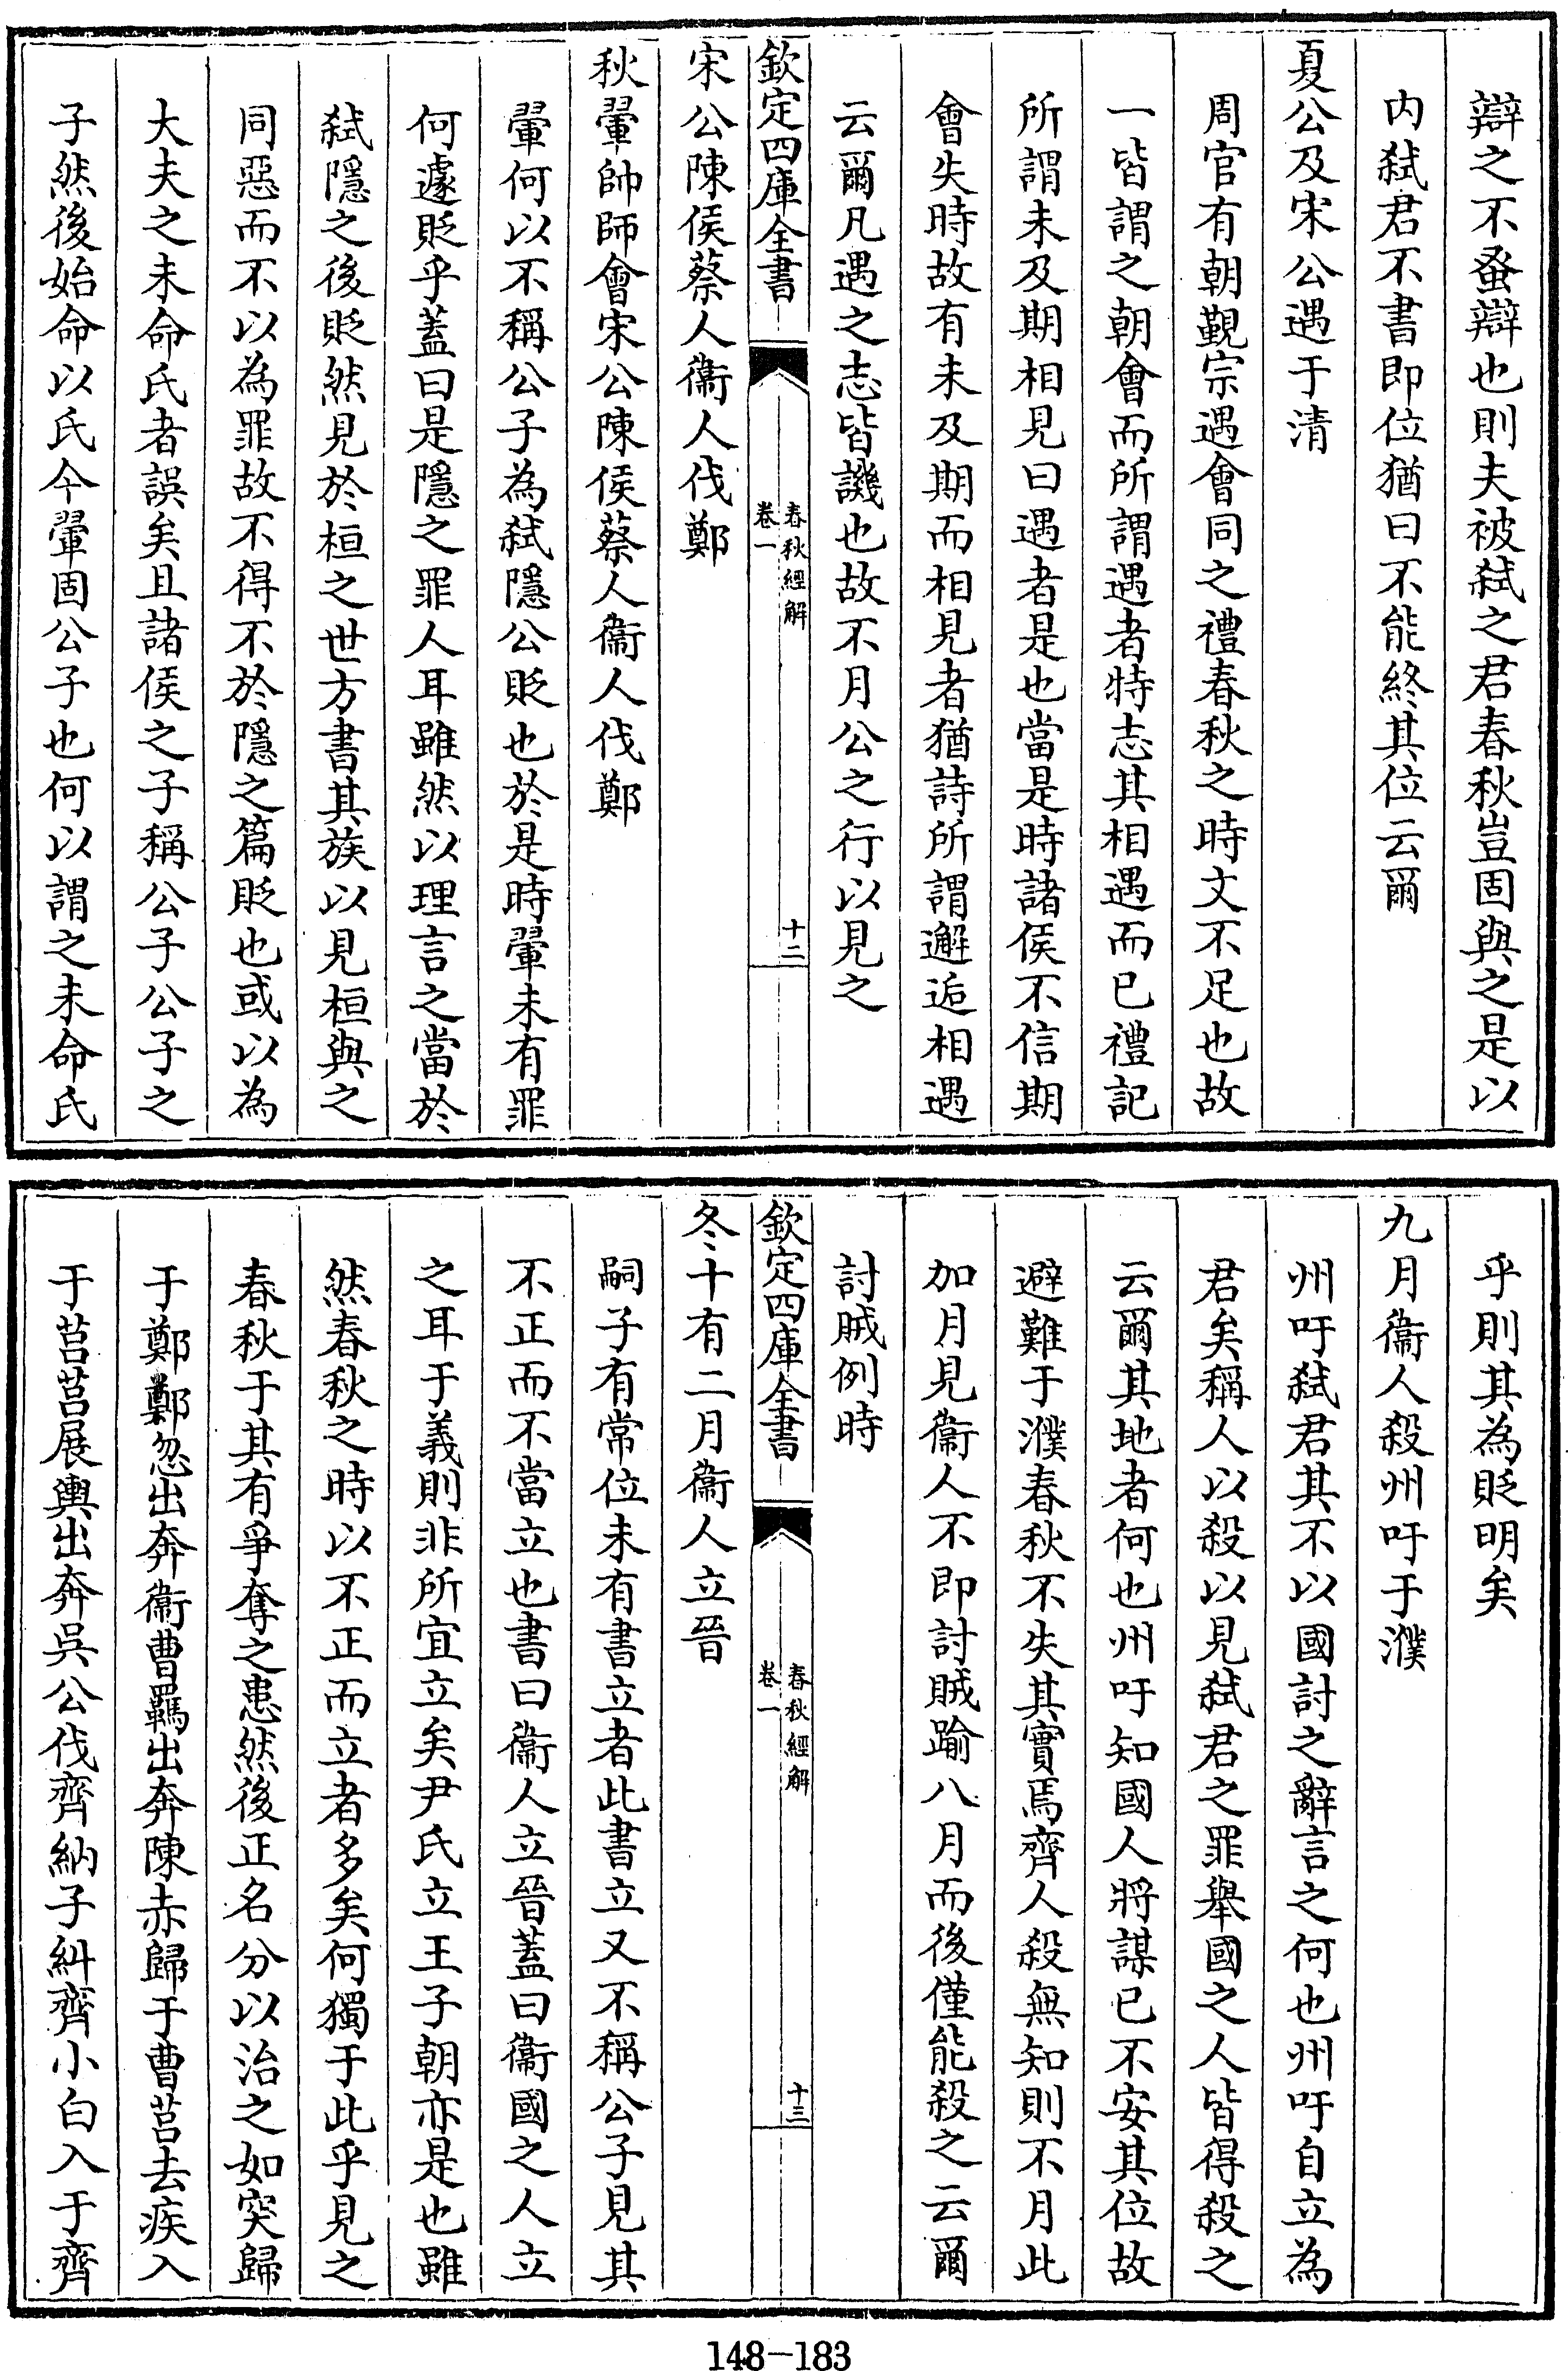 辯之不蚤辯也則夫被弑之君春秋豈固與之是以
内弑君不書即位猶曰不能終其位云爾
夏公及宋公遇于清
周官有朝覲宗遇會同之禮春秋之時文不足也故
一皆謂之朝會而所謂遇者特志其相遇而已禮記
所謂未及期相見曰遇者是也當是時諸侯不信期
會失時故有未及期而相見者猶詩所謂邂逅相遇
云爾凡遇之志皆譏也故不月公之行以見之
欽定四庫全書
春秋經解
卷一
十二
宋公陳侯蔡人衞人伐鄭
秋翬帥師會宋公陳侯蔡人衞人伐鄭
翬何以不稱公子為弑隱公貶也於是時翬未有罪
何遽貶乎蓋曰是隱之罪人耳雖然以理言之當於
弑隱之後貶然見於桓之世方書其族以見桓與之
同惡而不以為罪故不得不於隱之篇貶也或以為
大夫之未命氏者誤矣且諸侯之子稱公子公子之
子然後始命以氏今翬固公子也何以謂之未命氏
乎則其為貶明矣
九月衞人殺州吁于濮
州吁弑君其不以國討之辭言之何也州吁自立為
君矣稱人以殺以見弑君之罪舉國之人皆得殺之
云爾其地者何也州吁知國人將謀已不安其位故
避難于濮春秋不失其實焉齊人殺無知則不月此
加月見衞人不即討賊踰八月而後僅能殺之云爾
討賊例時
欽定四庫全書
春秋經解
卷一
十三
冬十有二月衞人立晉
嗣子有常位未有書立者此書立又不稱公子見其
不正而不當立也書曰衞人立晉蓋曰衞國之人立
之耳于義則非所宜立矣尹氏立王子朝亦是也雖
然春秋之時以不正而立者多矣何獨于此乎見之
春秋于其有爭奪之患然後正名分以治之如突歸
于鄭鄭忽出奔衞曹羈出奔陳赤歸于曹莒去疾入
于莒莒展輿出奔吳公伐齊納子糾齊小白入于齊
148-183